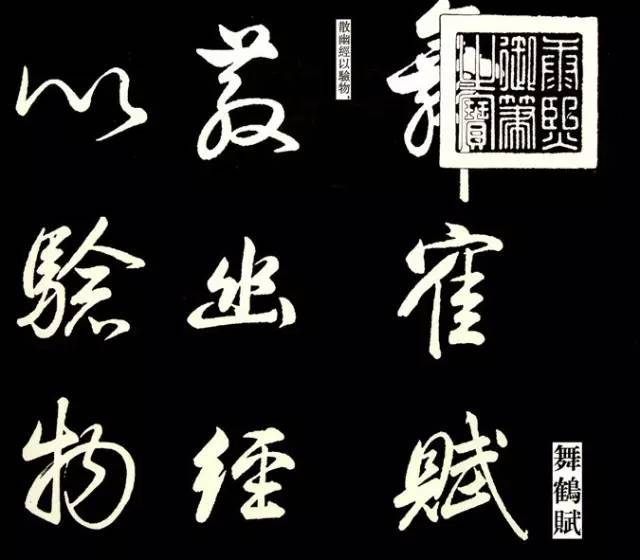 舞隺賦
康熙御筆之寶
舞鶴賦
散幽經
散幽經以驗物,
以驗物